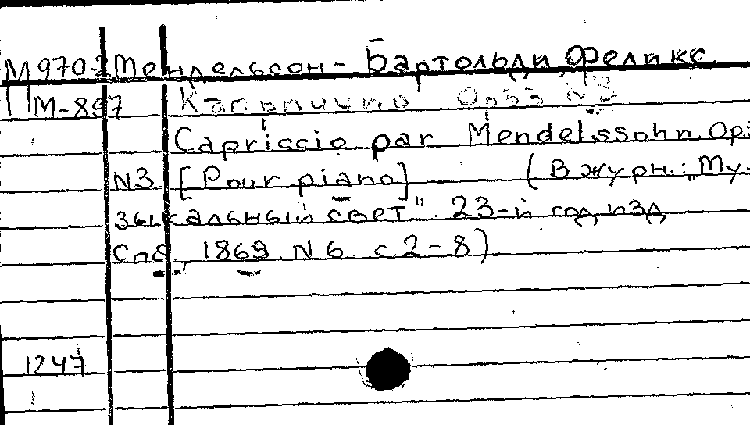 М970-2 Мендельсон-Бартольди, Феликс.
М-897 Каприччио Ор33 N3
Capriccio par Mendelssohn. Op.
N3. [Pour piano] (В журн.: „Му-
зыкальный свет" 23-й год, изд.
Спб., 1869 N 6 с 2-8)
1247